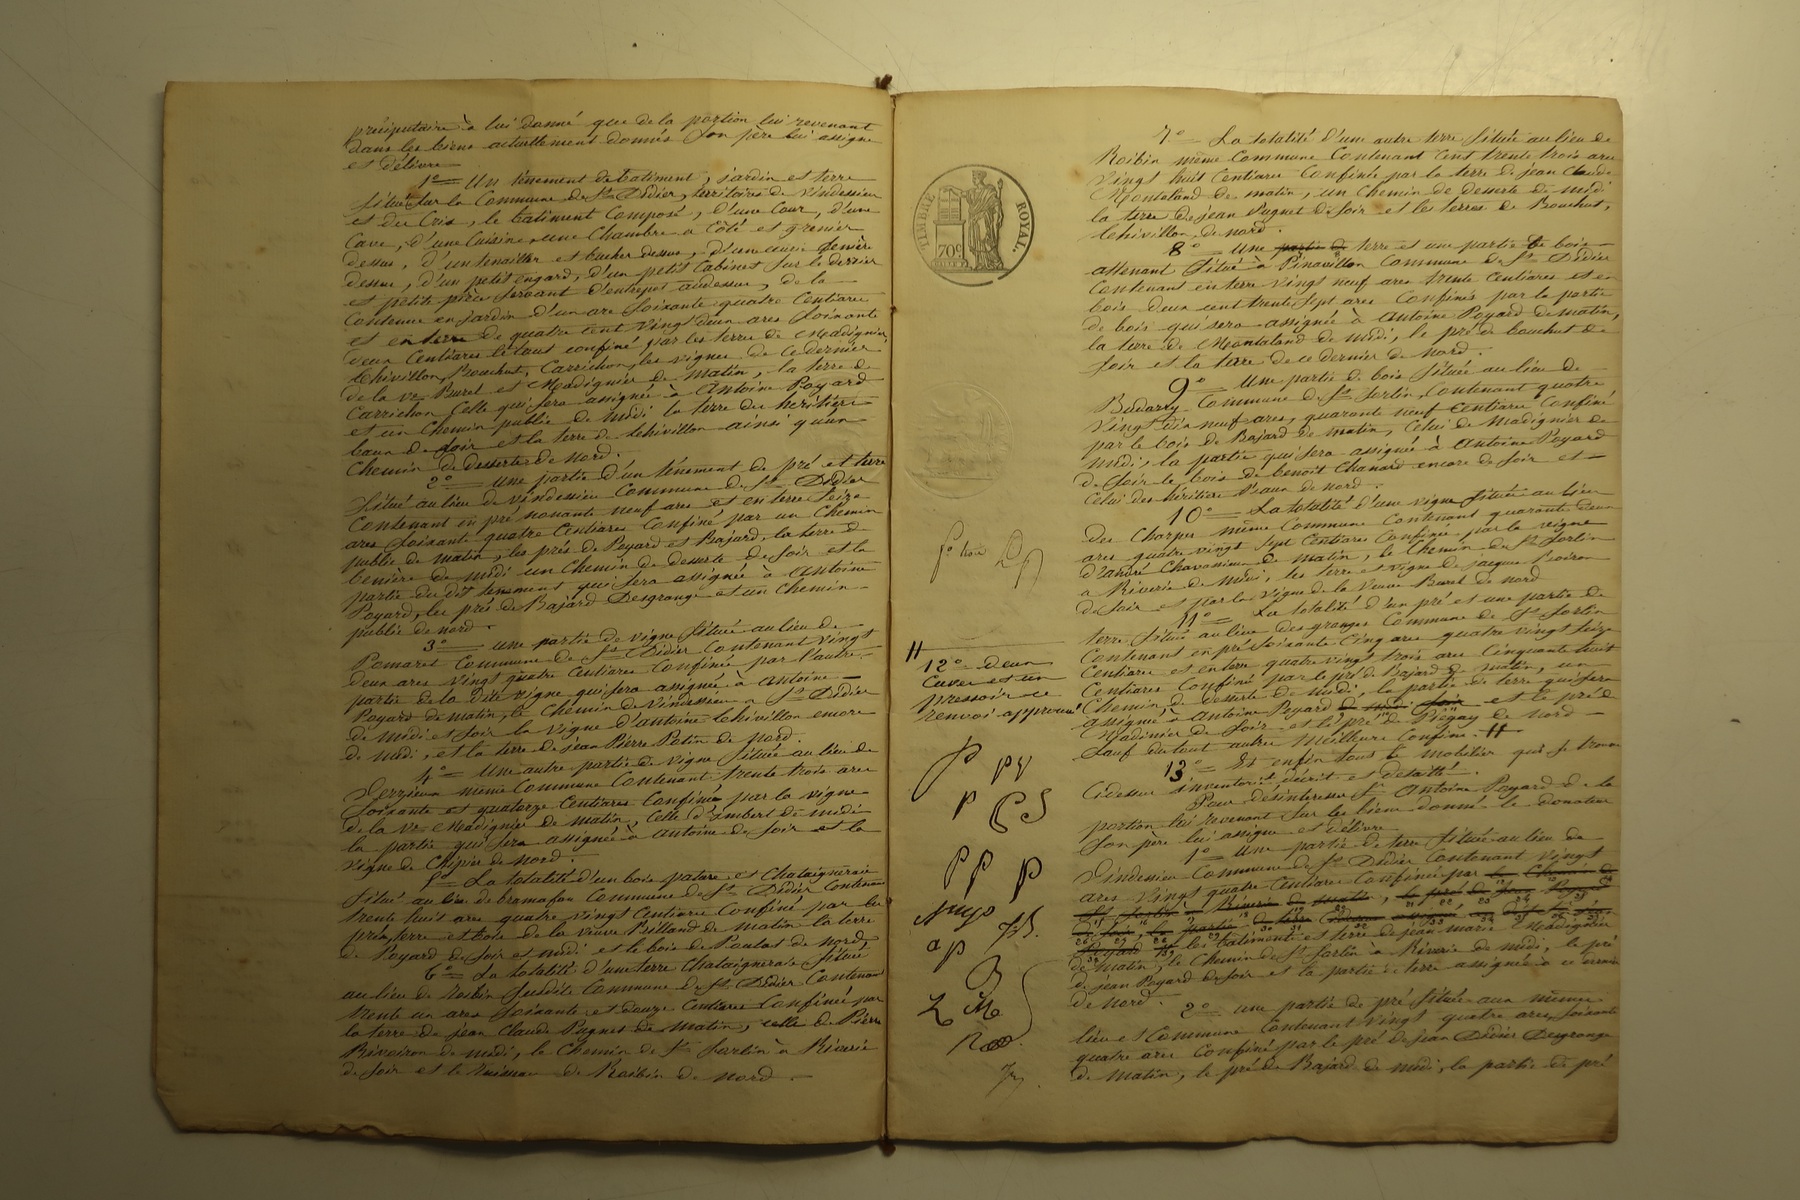 préciputaire à lui donné que de la portion lui revenant
dans les biens actuellement donnés son père lui assigne
et délivre
1° Un tènement de batiment, jardin et terre
situé sur la Commune de St Didier, territoires de Vindessieu
et du Cria, le batiment Composé, d'une Cour, d'une
Cave, d'une Cuisine, une Chambre à Côté et grenier
dessus, d'un tenailler et bucher dessus, d'une cuvière fenière
dessus, d'un petit engard, d'un petit Cabinet sur le derrier
et petite pièce servant d'entrepot audessus, de la
Contenue en jardin d'un are soixante quatre Centiares
et en terre de quatre cent vingt deux ares soixante
deux Centiares le tout confiné par les terres de Madignier,
Chevillon, Bouchut, Carrichon, les vignes de ce dernier
de la ve. Buret et Madignier de matin, la terre de
Carrichon Celle qui sera assignée à Antoine Poyard
et un Chemin public de midi la terre des héritiers
baux de soir et la terre de Chevillon ainsi qu'un
Chemin de desserte de Nord.
2° Une partie d'un tènement de pré et terre
situé au lieu de Vindessieu Commune de St Didier
Contenant en pré nonante neuf ares et en terre seize
ares soixante quatre Centiares Confiné par un Chemin
public de matin, les prés de Poyard et Bajard, la terre de
de midi un Chemin de desserte de soir et la
partie du dit tènement qui sera assignée à Antoine
Poyard, les prés de Bajard Desgrange et un Chemin
public de nord.
3° une partie de vigne située au lieu de
Pomaret Commune de St Didier Contenant vingt
deux ares vingt quatre Centiares Confinée par l'autre
partie de la dite vigne qui sera assignée à Antoine
Poyard de matin, le Chemin de Vindessieu à St Didier
de midi et soir la vigne d'antoine Chevillon encore
de midi, et la terre de jean Pierre Patin de nord.
4° Une autre partie de vigne située au lieu de
même Commune Contenant trente trois ares
soixante et quatorze Centiares Confinée par la vigne
de la ve. Madignier de matin, Celle d'Imbert de midi
la partie qui sera assignée à antoine de soir et la
vigne de Chipier de nord.
La totalité d'un bois pature et Chataigneraie
situé au lieu de bramafan Commune de St Didier Contenant
trente huit ares quatre vingt Centiares Confiné par les
prés, terre et bois de la veuve de matin la terre
de Poyard de soir et midi et le bois de de nord,
6° La totalité d'une terre Chataigneraie située
au lieu de Roibin susdite Commune de St Didier Contenant
trente un ares soixante et douze Centiares Confinée par
la terre de jean Claude Pugnet de matin, celle de Pierre
de midi, le Chemin de St Sorlin à Riverie
de soir et le Ruisseau de Roibin de nord.
TIMBRE ROYAL.
70c
7° La totalité d'une autre terre située au lieu de
Roibin même Commune Contenant cent trente trois ares
vingt huit Centiares Confinée par la terre de jean Claude
Montaland de matin, un Chemin de desserte de midi
la terre de jean Pugnet de soir et les terres de Bouchut,
Chevillon, de nord.
8° Une partie de terre et une partie de bois
attenant situé à Pinavillon Commune de St Didier
Contenant en terre vingt neuf ares trente Centiares et en
bois deux cent trente sept ares Confinés par la partie
de bois qui sera assignée à Antoine Poyard de matin,
la terre de Montaland de midi, le pré de bouchut de
soir et la terre de ce dernier de nord.
9° Une partie de bois située au lieu de
Commune de St Sorlin, Contenant quatre
vingt dix neuf ares, quarante neuf Centiares Confiné
par le bois de Bajard de matin, Celui de Madignier de
midi, la partie qui sera assignée à Antoine Poyard
de soir le bois de benoit Chanard encore de soir et
Celui des héritiers de nord.
10° La totalité d'une vigne située au lieu
des Charpes même Commune Contenant quarante deux
ares quatre vingt sept Centiares Confinée par la vigne
d'andré Chavassieux de matin, le Chemin de St Sorlin
à Riverie de midi, les terre et vigne de jacques
de soir et par la vigne de la Veuve Buret de nord
11° La totalité d'un pré et une partie de
terre située au lieu des granges Commune de St Sorlin
Contenant en pré soixante Cinq ares quatre vingt seize
Centiares et en terre quatre vingt trois ares Cinquante huit
Centiares Confiné par le pré de Bajard de matin, un
Chemin de desserte de midi, la partie de terre qui sera
assignée à Antoine Poyard de midi soir et le pré de
Madinier de soir et le pré de Piégay de nord
sauf du tout autres meilleurs Confins. H
13° Et enfin tous le mobilier qui se trouve
Cidessus inventorié, décrit et détaillé.
Pour désinteresser St Antoine Poyard de la
portion lui revenant sur les biens donnés le donateur
son père lui assigne et délivre
1° Une partie de terre située au lieu de
Vindessieu Commune de St Didier Contenant vingt
ares vingt quatre Centiares Confinée par le Chemin de
St Sorlin à Riverie de matin, le pré de jean Poyard
de soir, la partie de terre
les batiments et terre de jean marie Madignier
de matin, le Chemin de St Sorlin à Riverie de midi, le pré
de jean Poyard de soir et la partie de terre assignée à ce dernier
de nord.
2° une partie de pré située aux mêmes
lieu et Commune Contenant vingt quatre ares, soixante
quatre ares Confiné par le pré de jean Didier Desgrange
de matin, le pré de Bajard de midi, la partie de pré
H
12° deux
Cuves et un
pressoir ce
renvoi approuvé